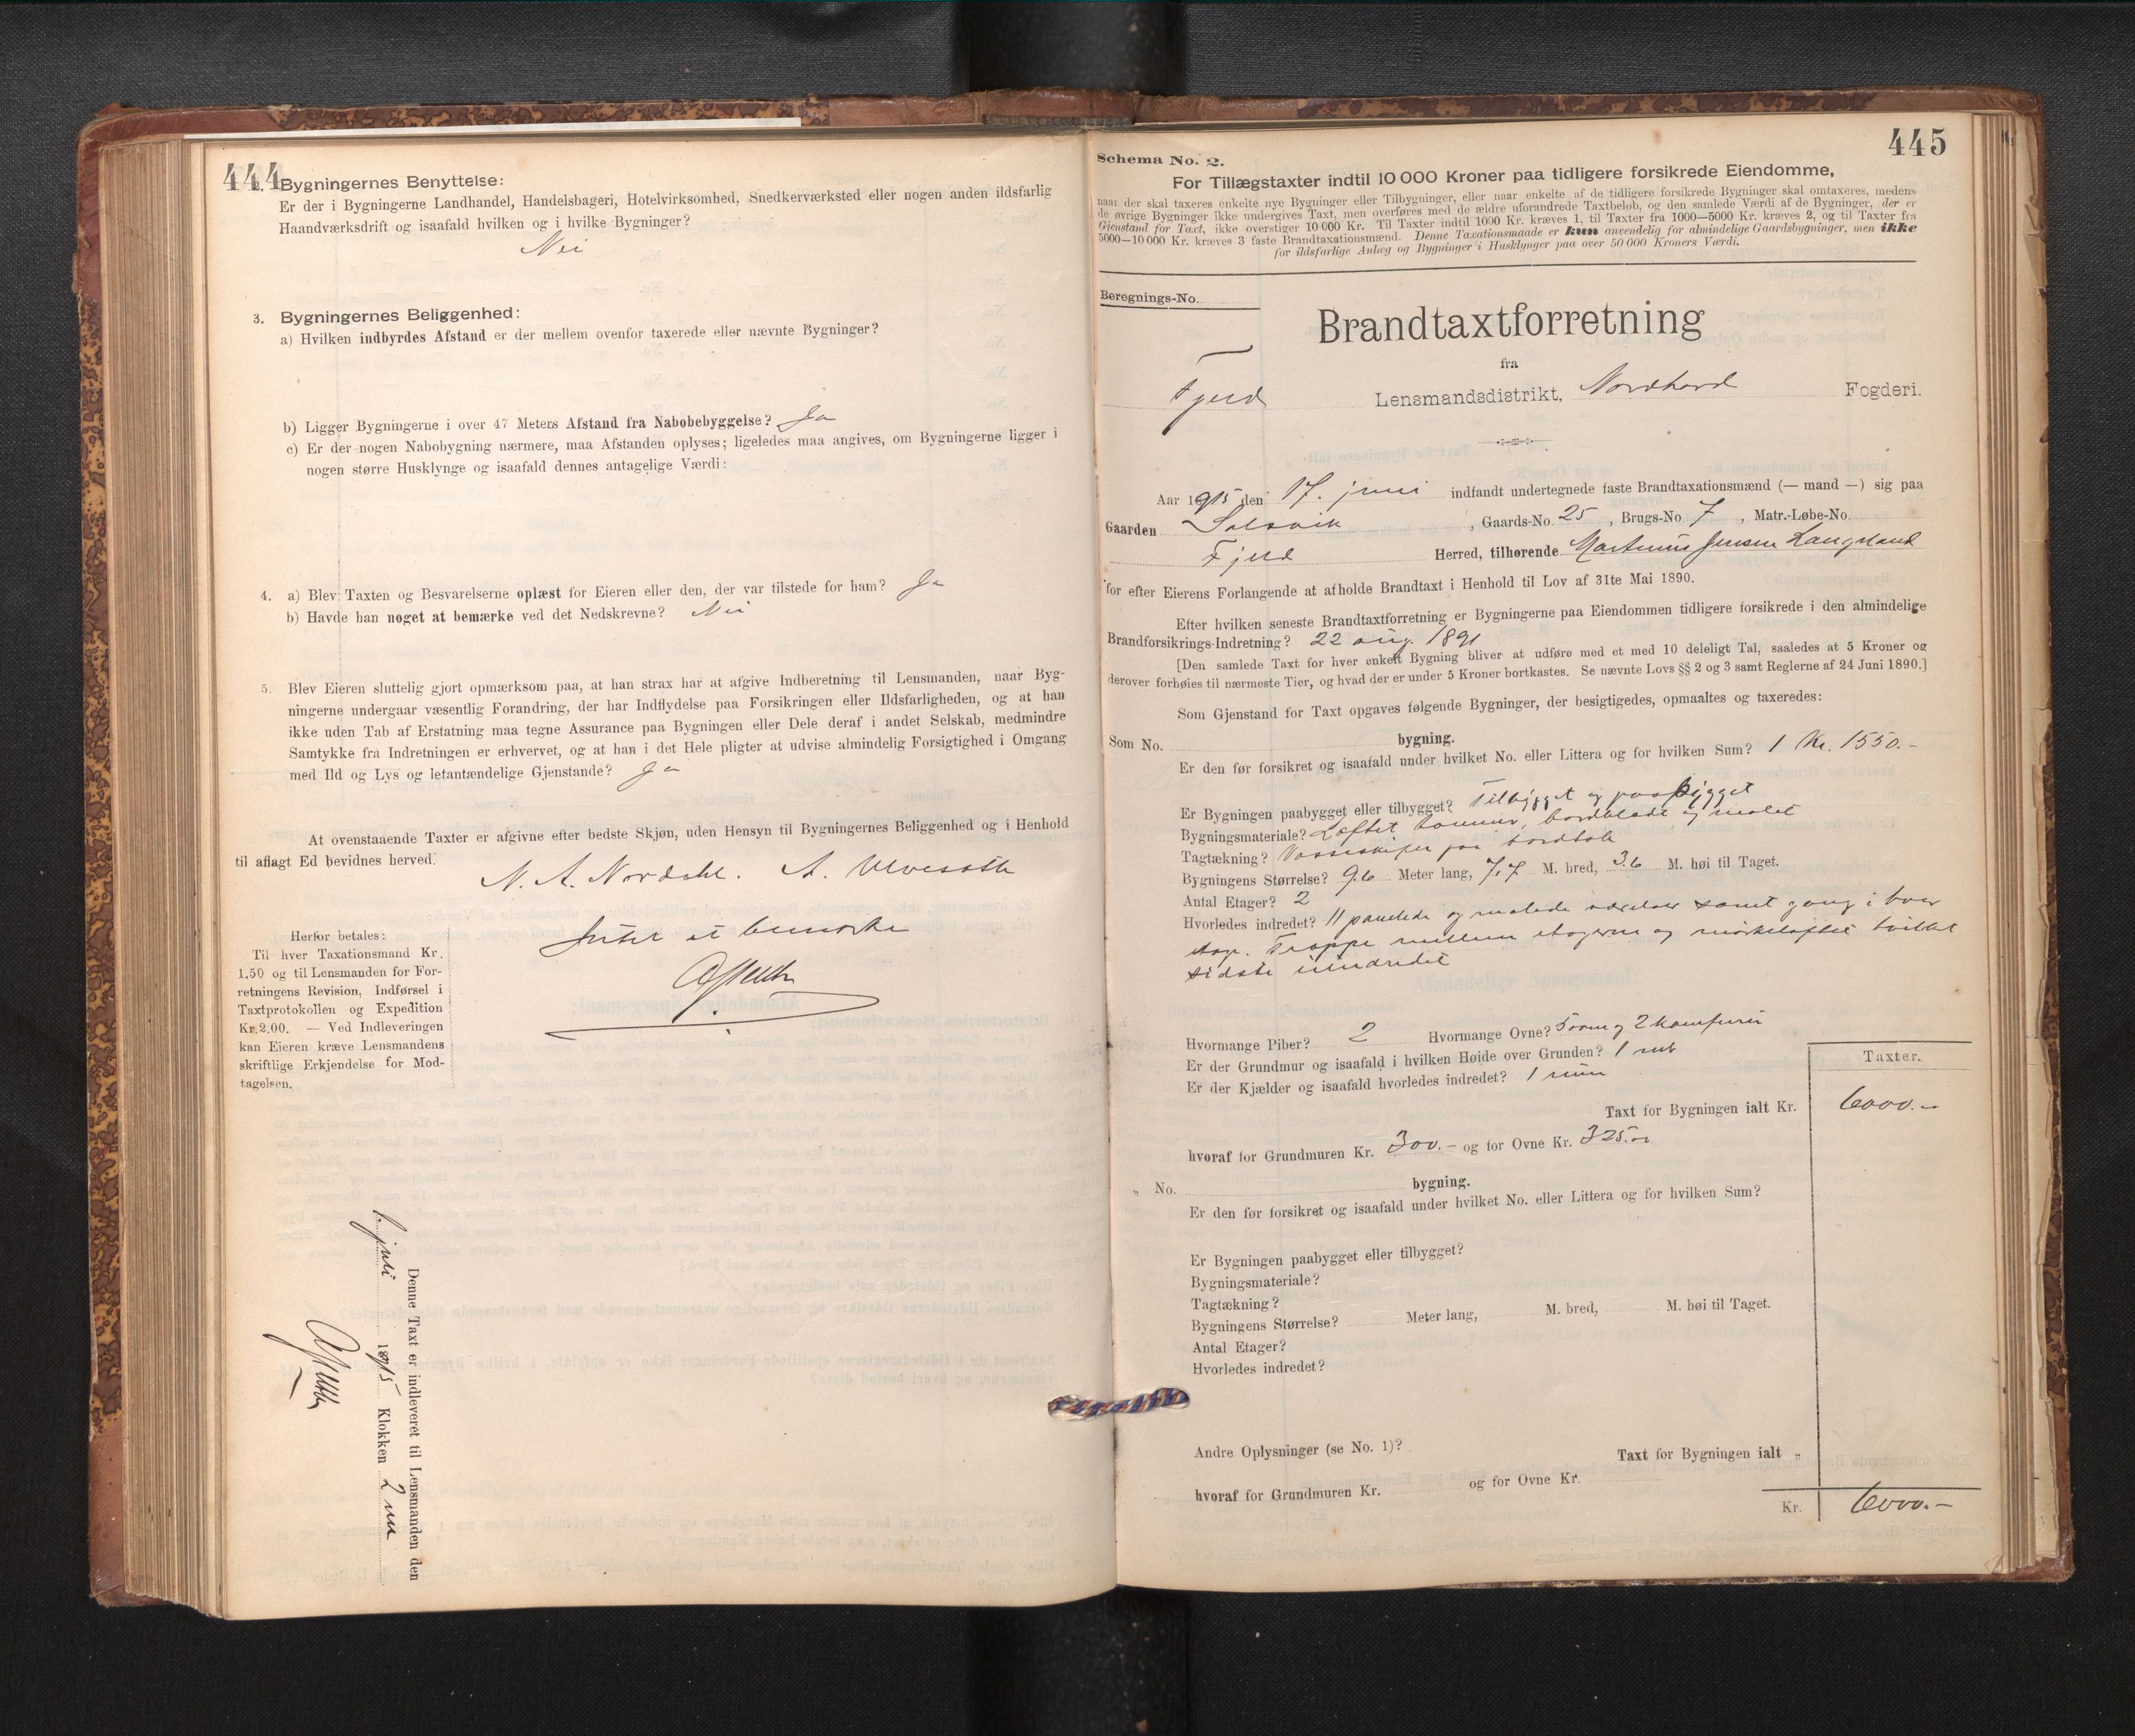 444
2. Bygningernes Benyttelse:
Er der i Bygningerne Landhandel, Handelsbageri, Hotelvirksomhed, Snedkerværksted eller nogen anden ildsfarlig
Haandværksdrift og isaafald hvilken og i hvilke Bygninger?
Nei
3. Bygningernes Beliggenhed:
a) Hvilken indbyrdes Afstand er der mellem ovenfor taxerede eller nævnte Bygninger?
b) Ligger Bygningerne i over 47 Meters Afstand fra Nabobebyggelse? Ja
c) Er der nogen Nabobygning nærmere, maa Afstanden oplyses; ligeledes maa angives, om Bygningerne ligger i
nogen større Husklynge og isaafald dennes antagelige Værdi:
4. a) Blev Taxten og Besvarelserne oplæst for Eieren eller den, der var tilstede for ham? Ja
b) Havde han noget at bemærke ved det Nedskrevne? Nei
5. Blev Eieren sluttelig gjort opmærksom paa, at han strax har at afgive Indberetning til Lensmanden, naar Byg-
ningerne undergaar væsentlig Forandring, der har Indflydelse paa Forsikringen eller Ildsfarligheden, og at han
ikke uden Tab af Erstatning maa tegne Assurance paa Bygningen eller Dele deraf i andet Selskab, medmindre
Samtykke fra Indretningen er erhvervet, og at han i det Hele pligter at udvise almindelig Forsigtighed i Omgang
med Ild og Lys og letantændelige Gjenstande? Ja
At ovenstaaende Taxter er afgivne efter bedste Skjøn, uden Hensyn til Bygningernes Beliggenhed og i Henhold
til aflagt Ed bevidnes herved.
N. A. Nordahl. A. Ulveseth
Intet at bemerke
Herfor betales:
Til hver Taxationsmand Kr.
1.50 og til Lensmanden for For-
retningens Revision, Indførsel i
Taxtprotokollen og Expedition
Kr. 2.00. — Ved Indleveringen
kan Eieren kræve Lensmandens
skriftlige Erkjendelse for Mod-
tagelsen.
Denne Taxt er indleveret til Lensmanden den
6 juli 1915 Klokken 2 em
445
Schema No. 2.
For Tillægstaxter indtil 10 000 Kroner paa tidligere forsikrede Eiendomme,
naar der skal taxeres enkelte nye Bygninger eller Tilbygninger, eller naar enkelte af de tidligere forsikrede Bygninger skal omtaxeres, medens
de øvrige Bygninger ikke undergives Taxt, men overføres med de ældre uforandrede Taxtbeløb, og den samlede Værdi af de Bygninger, der er
Gjenstand for Taxt, ikke overstiger 10 000 Kr. Til Taxter indtil 1000 Kr. kræves 1, til Taxter fra 1000—5000 Kr. kræves 2, og til Taxter fra
5000—10 000 Kr. kræves 3 faste Brandtaxationsmænd. Denne Taxationsmaade er kun anvendelig for almindelige Gaardsbygninger, men ikke
for ildsfarlige Anlæg og Bygninger i Husklynger paa over 50 000 Kroners Værdi.
Beregnings-No.
Brandtaxtforretning
fra
Fjeld Lensmandsdistrikt, Nordhord Fogderi.
Aar 1915 den 17. juni indfandt undertegnede faste Brandtaxationsmænd (— mand —) sig paa
Gaarden Solsvik, Gaards-No. 25, Brugs-No. 7, Matr.-Løbe-No.
Fjeld Herred, tilhørende Martinus Jensen Langeland
for efter Eierens Forlangende at afholde Brandtaxt i Henhold til Lov af 31te Mai 1890.
Efter hvilken seneste Brandtaxtforretning er Bygningerne paa Eiendommen tidligere forsikrede i den almindelige
Brandforsikrings-Indretning? 22 aug. 1891
[Den samlede Taxt for hver enkelt Bygning bliver at udføre med et med 10 deleligt Tal, saaledes at 5 Kroner og
derover forhøies til nærmeste Tier, og hvad der er under 5 Kroner bortkastes. Se nævnte Lovs §§ 2 og 3 samt Reglerne af 24 Juni 1890.]
Som Gjenstand for Taxt opgaves følgende Bygninger, der besigtigedes, opmaaltes og taxeredes:
Som No. bygning.
Er den før forsikret og isaafald under hvilket No. eller Littera og for hvilken Sum? 1 Kr. 1550.-
Er Bygningen paabygget eller tilbygget? Tilbygget og paabygget
Bygningsmateriale? Løftet tømmer, bordklædt og malet
Tagtækning? Vosseskifer paa bordtak
Bygningens Størrelse? 9.6 Meter lang, 7,7 M. bred, 3.6 M. høi til Taget.
Antal Etager? 2
Hvorledes indredet? 11 panelede og malede værelser samt gang i hver
etage. Trappe mellem etagerne og mørkeloftet hvilket
sidste uindredet
Hvormange Piber? 2 Hvormange Ovne? 5 ovne og 2 komfurer
Er der Grundmur og isaafald i hvilken Høide over Grunden? 1 mtr
Er der Kjælder og isaafald hvorledes indredet? 1 rum
Taxter.
Taxt for Bygningen ialt Kr. 6000.-
hvoraf for Grundmuren Kr. 300.- og for Ovne Kr. 325.-
„ No. bygning.
Er den før forsikret og isaafald under hvilket No. eller Littera og for hvilken Sum?
Er Bygningen paabygget eller tilbygget?
Bygningsmateriale?
Tagtækning?
Bygningens Størrelse? Meter lang, M. bred, M. høi til Taget.
Antal Etager?
Hvorledes indredet?
Andre Oplysninger (se No. 1)? Taxt for Bygningen ialt „
hvoraf for Grundmuren Kr. og for Ovne Kr.
Kr. 6000.-